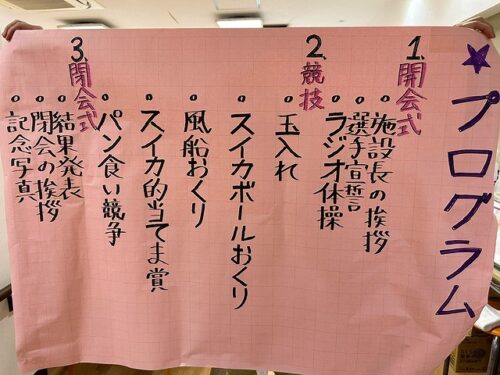 ★プログラム
1.開会式
・施設長の挨拶
・選手宣誓
・ラジオ体操
2.競技
・玉入れ
・スイカボールおくり
・風船おくり
・スイカ的当てま賞
・パン食い競争
3.閉会式
・結果発表
・閉会の挨拶
・記念写真